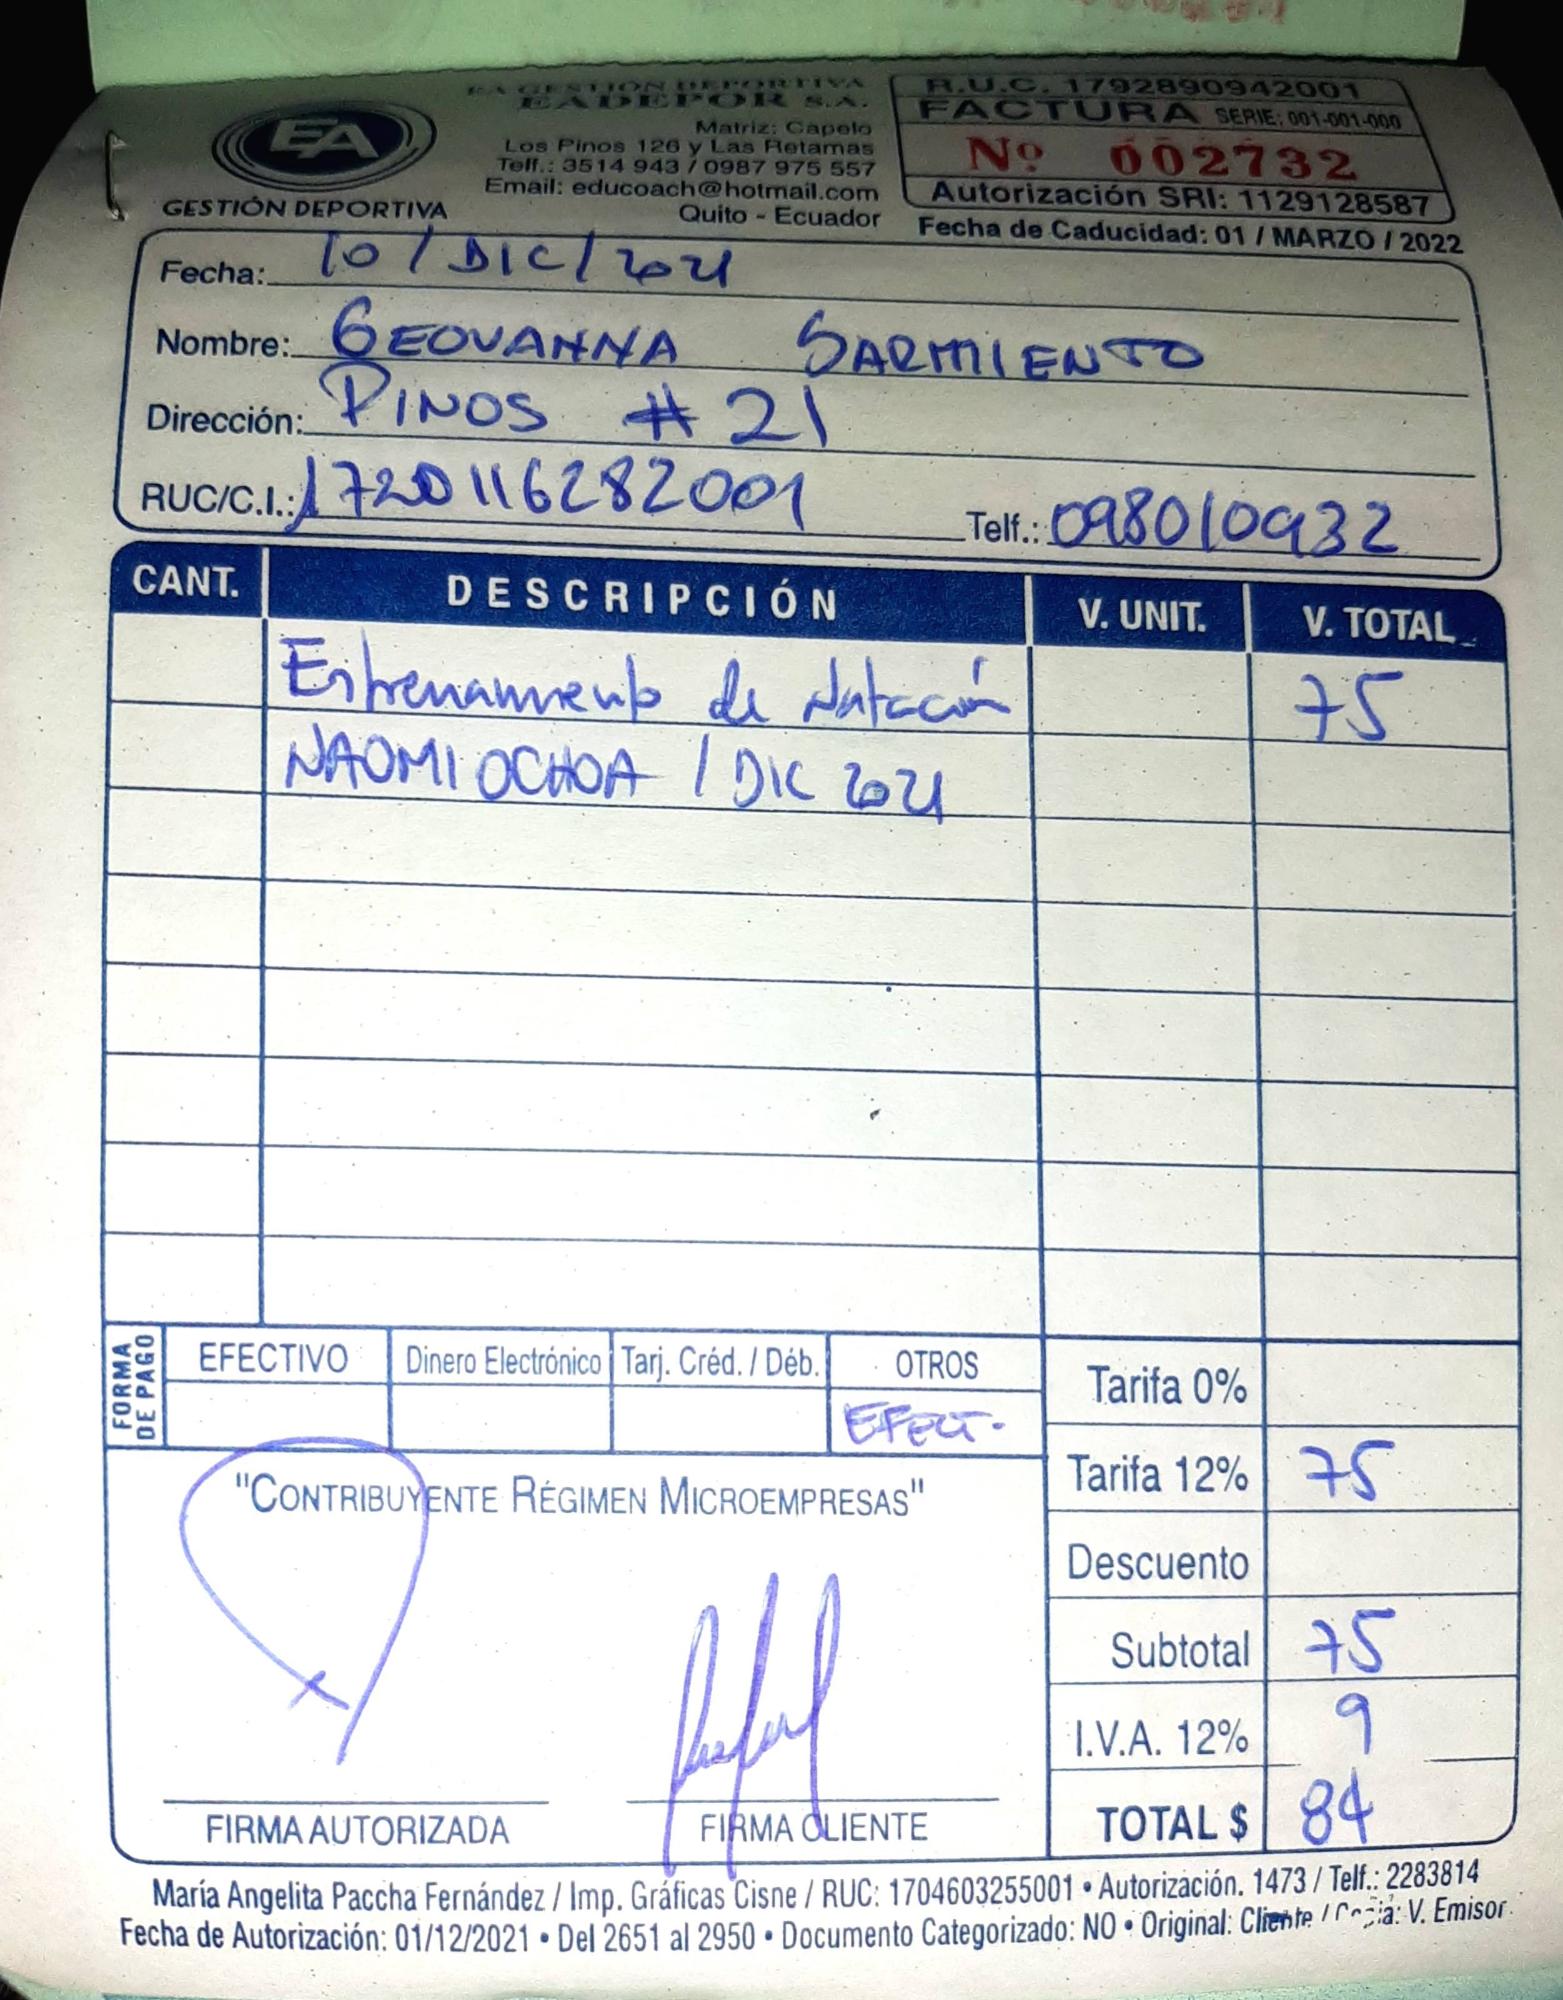 EA GESTIÓN DEPORTIVA
EADEPOR S.A.
Matriz: Capelo
Los Pinos 126 y Las Retamas
Telf.: 3514 943 / 0987 975 557
Email: educoach@hotmail.com
Quito - Ecuador
EA
GESTIÓN DEPORTIVA
R.U.C. 1792890942001
FACTURA SERIE: 001-001-000
Nº 002732
Autorización SRI: 1129128587
Fecha de Caducidad: 01 / MARZO / 2022
Fecha: 10 / DIC / 2021
Nombre: GEOVANNA SARMIENTO
Dirección: PINOS # 21
RUC/C.I.: 1720116282001 Telf.: 098010932
CANT. DESCRIPCIÓN V. UNIT. V. TOTAL
Entrenamiento de Natación 75
NAOMI OCHOA / DIC 2021
FORMA DE PAGO
EFECTIVO Dinero Electrónico Tarj. Créd. / Déb. OTROS
EFECT.
"CONTRIBUYENTE RÉGIMEN MICROEMPRESAS"
Tarifa 0%
Tarifa 12% 75
Descuento
Subtotal 75
I.V.A. 12% 9
TOTAL $ 84
FIRMA AUTORIZADA FIRMA CLIENTE
María Angelita Paccha Fernández / Imp. Gráficas Cisne / RUC: 1704603255001 • Autorización. 1473 / Telf.: 2283814
Fecha de Autorización: 01/12/2021 • Del 2651 al 2950 • Documento Categorizado: NO • Original: Cliente / Copia: V. Emisor